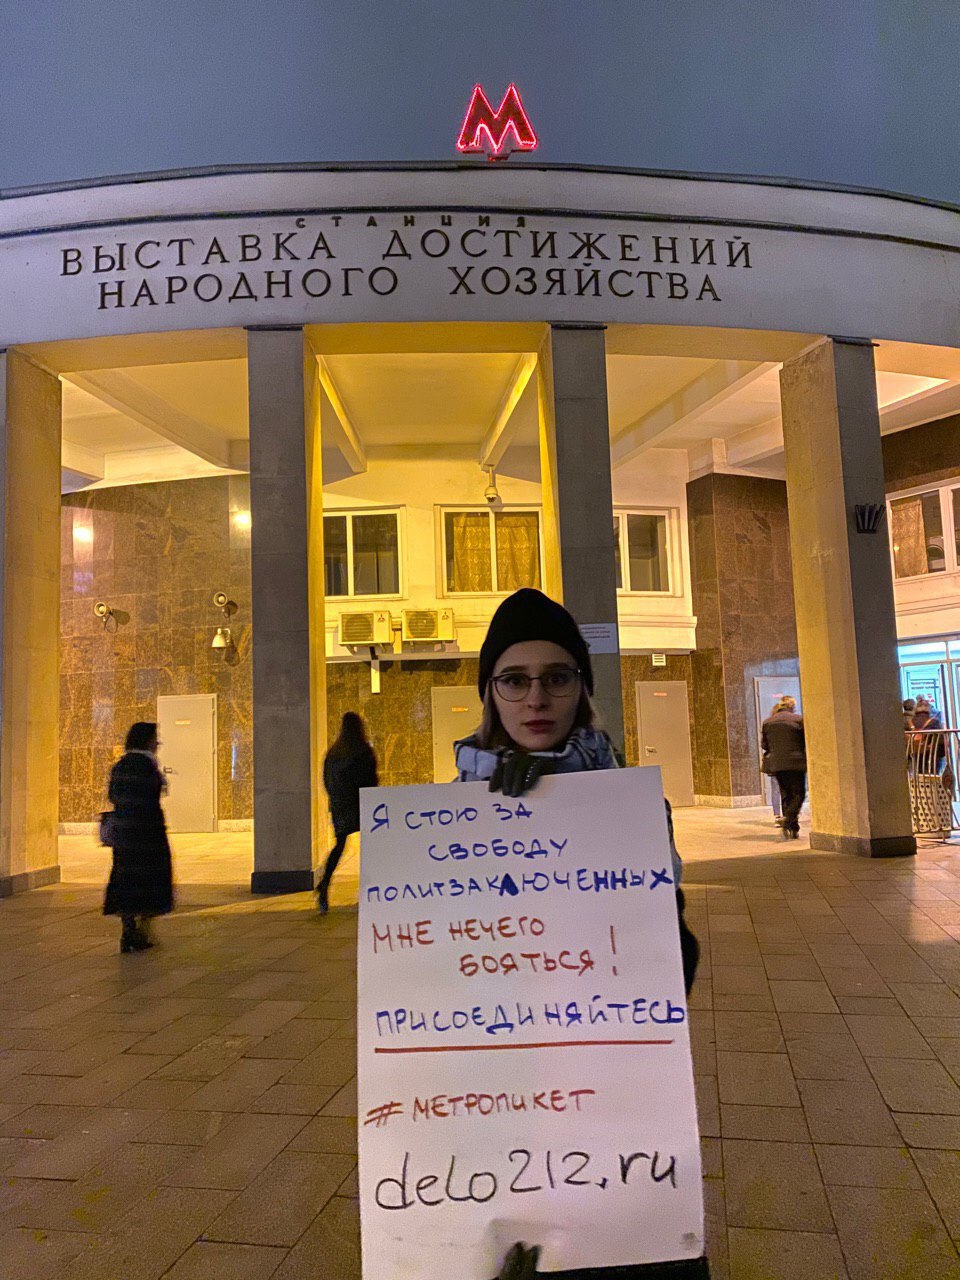 М
СТАНЦИЯ
ВЫСТАВКА ДОСТИЖЕНИЙ
НАРОДНОГО ХОЗЯЙСТВА
Я СТОЮ ЗА
СВОБОДУ
ПОЛИТЗАКЛЮЧЕННЫХ
МНЕ НЕЧЕГО
БОЯТЬСЯ!
ПРИСОЕДИНЯЙТЕСЬ
#МЕТРОПИКЕТ
delo212.ru